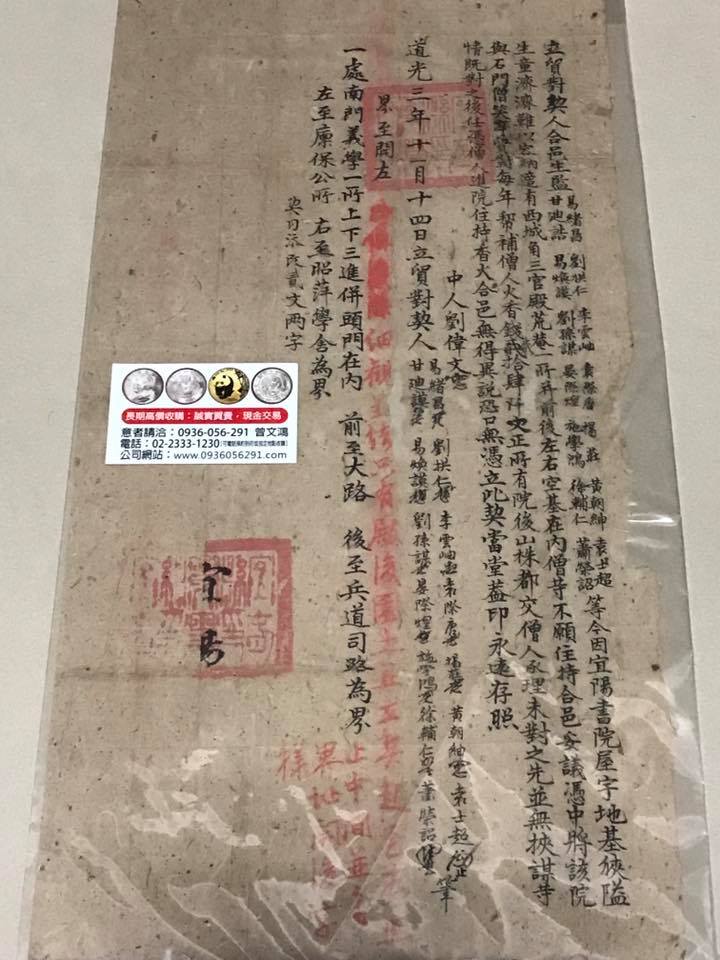 立貿對契人合邑生監
易緒昌 劉拱仁 李雲岫 袁際唐 楊莊 黃朝紳 袁士超
甘廸誥 易煥謨 劉孫謀 晏際煌 施學鴻 徐輔仁 蕭榮詔
等今因宜陽書院屋宇地基狹隘
生童濟濟難以容納邊有西城角三官殿荒巷一所并前後左右空基在內僧等不願住持合邑妥議憑中將該院
與石門僧對每年幫補僧人火香錢貳拾肆阡文正所有院後山株都交僧人承理未對之先並無挾謀等
情既對之後任憑僧人進院住持香火合邑無得異說恐口無憑立此契當堂蓋印永遠存照
中人劉偉文
道光三年十一月十四日立貿對契人
易緒昌 劉拱仁 李雲岫 袁際唐 楊莊 黃朝紳 袁士超 筆
甘廸 易煥謨 劉孫謀 晏際煌 施學鴻 徐輔仁 蕭榮詔
界至開左
一處南門義學一所上下三進併頭門在內 前至大路 後至兵道司路為界
左至廩保公所 右至昭萍學舍為界
契內添改貳文兩字
止中間
界址
樣
長期高價收購：誠實買賣，現金交易
意者請洽：0936-056-291 曾文鴻
電話：02-2333-1230
公司網站：www.0936056291.com